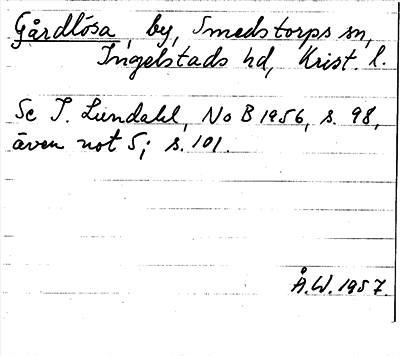 Gårdlösa, by, Smedstorps sn,
Ingelstads hd, Krist. l.
Se I. Lundahl, No B 1956, s. 98,
även not 5; s. 101.
Å.W. 1957.